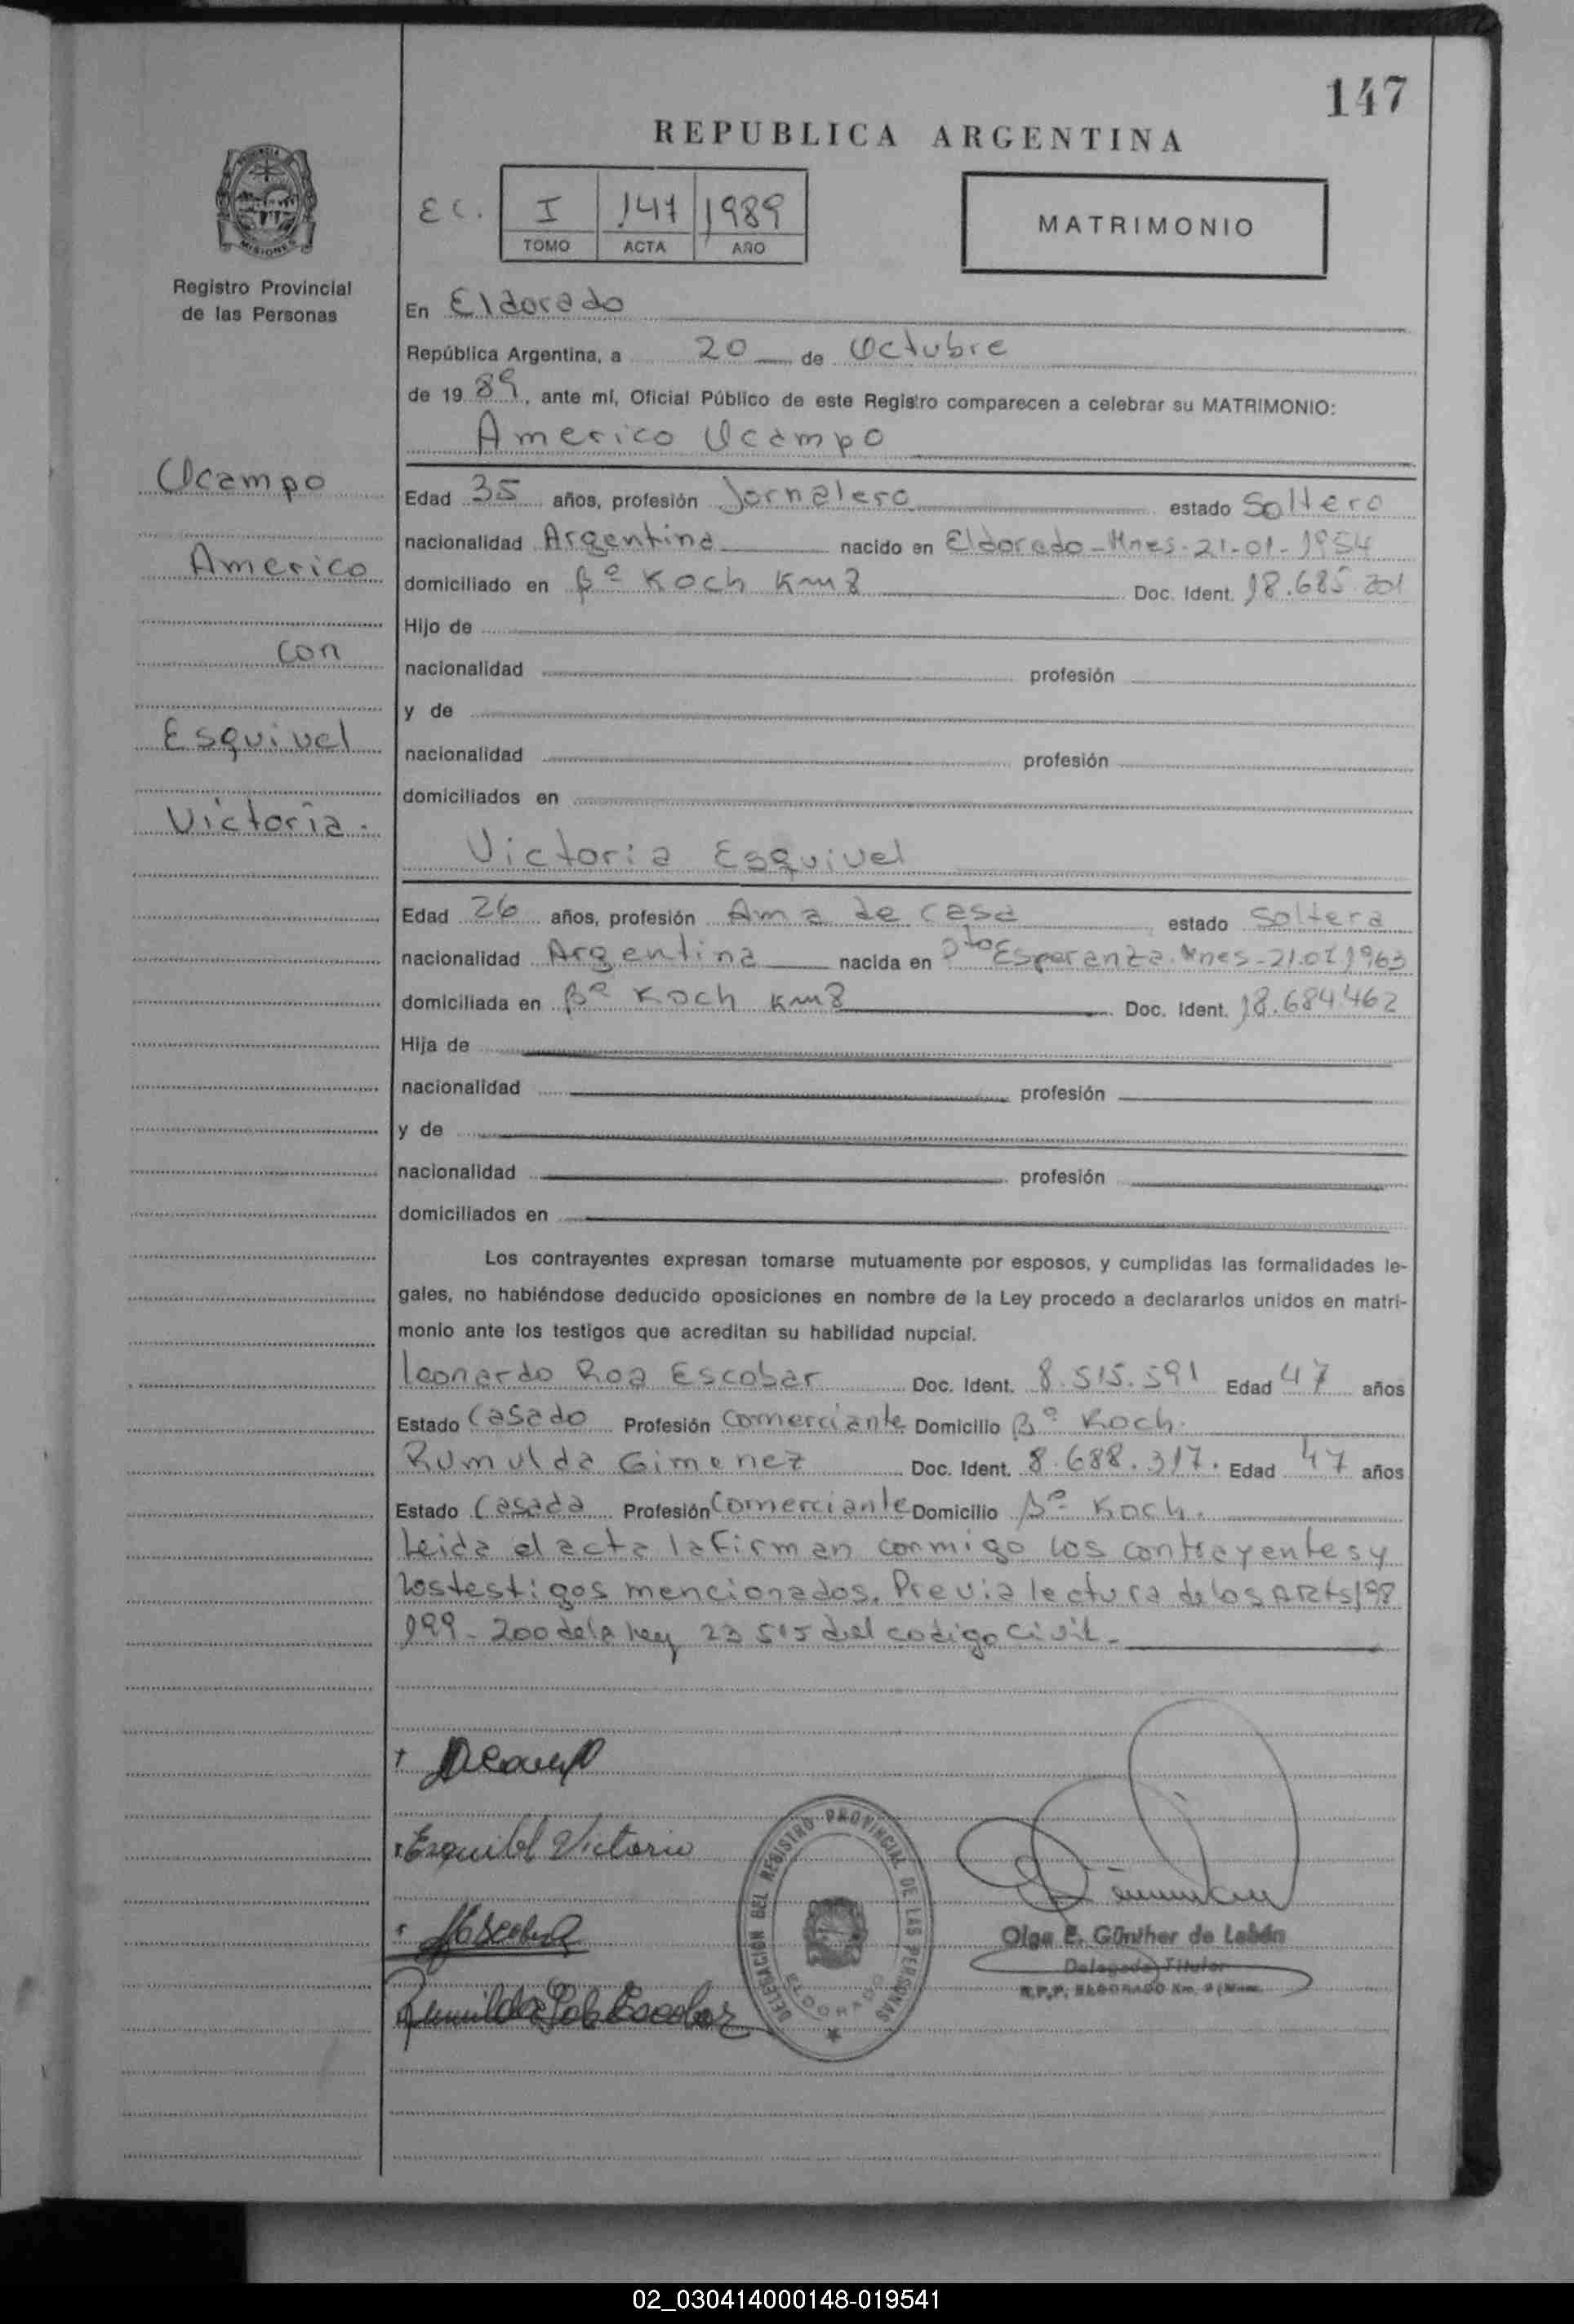 147
REPUBLICA ARGENTINA
E C. I 147 1989
TOMO ACTA AÑO
MATRIMONIO
PROVINCIA
MISIONES
Registro Provincial
de las Personas
En Eldorado
República Argentina, a 20 de Octubre
de 19 89, ante mí, Oficial Público de este Registro comparecen a celebrar su MATRIMONIO:
Americo Ocampo
Ocampo
Americo
con
Esquivel
Victoria.
Edad 35 años, profesión Jornalero estado Soltero
nacionalidad Argentina nacido en Eldorado-Mnes-21-01-1954
domiciliado en Bº Koch Km 8 Doc. Ident. 18.685.201
Hijo de
nacionalidad profesión
y de
nacionalidad profesión
domiciliados en
Victoria Esquivel
Edad 26 años, profesión Ama de casa estado Soltera
nacionalidad Argentina nacida en Pto Esperanza. Mnes-21.07.1963
domiciliada en Bº Koch Km 8 Doc. Ident. 18.684.462
Hija de
nacionalidad profesión
y de
nacionalidad profesión
domiciliados en
Los contrayentes expresan tomarse mutuamente por esposos, y cumplidas las formalidades le-
gales, no habiéndose deducido oposiciones en nombre de la Ley procedo a declararlos unidos en matri-
monio ante los testigos que acreditan su habilidad nupcial.
Leonardo Roa Escobar Doc. Ident. 8.515.591 Edad 47 años
Estado Casado Profesión Comerciante Domicilio Bº Koch.
Rumulda Gimenez Doc. Ident. 8.688.317. Edad 47 años
Estado Casada Profesión Comerciante Domicilio Bº Koch.
Leida el acta la firman conmigo los contrayentes y
los testigos mencionados. Previa lectura de los ARts 198
199-200 de la ley 23515 del codigo civil.-
Ocampo
Esquibel Victoria
DELEGACIÓN DEL REGISTRO PROVINCIAL DE LAS PERSONAS
ELDORADO
Olga E. Günther de Labán
Delegada Titular
R.P.P. ELDORADO Km. 9
02_030414000148-019541